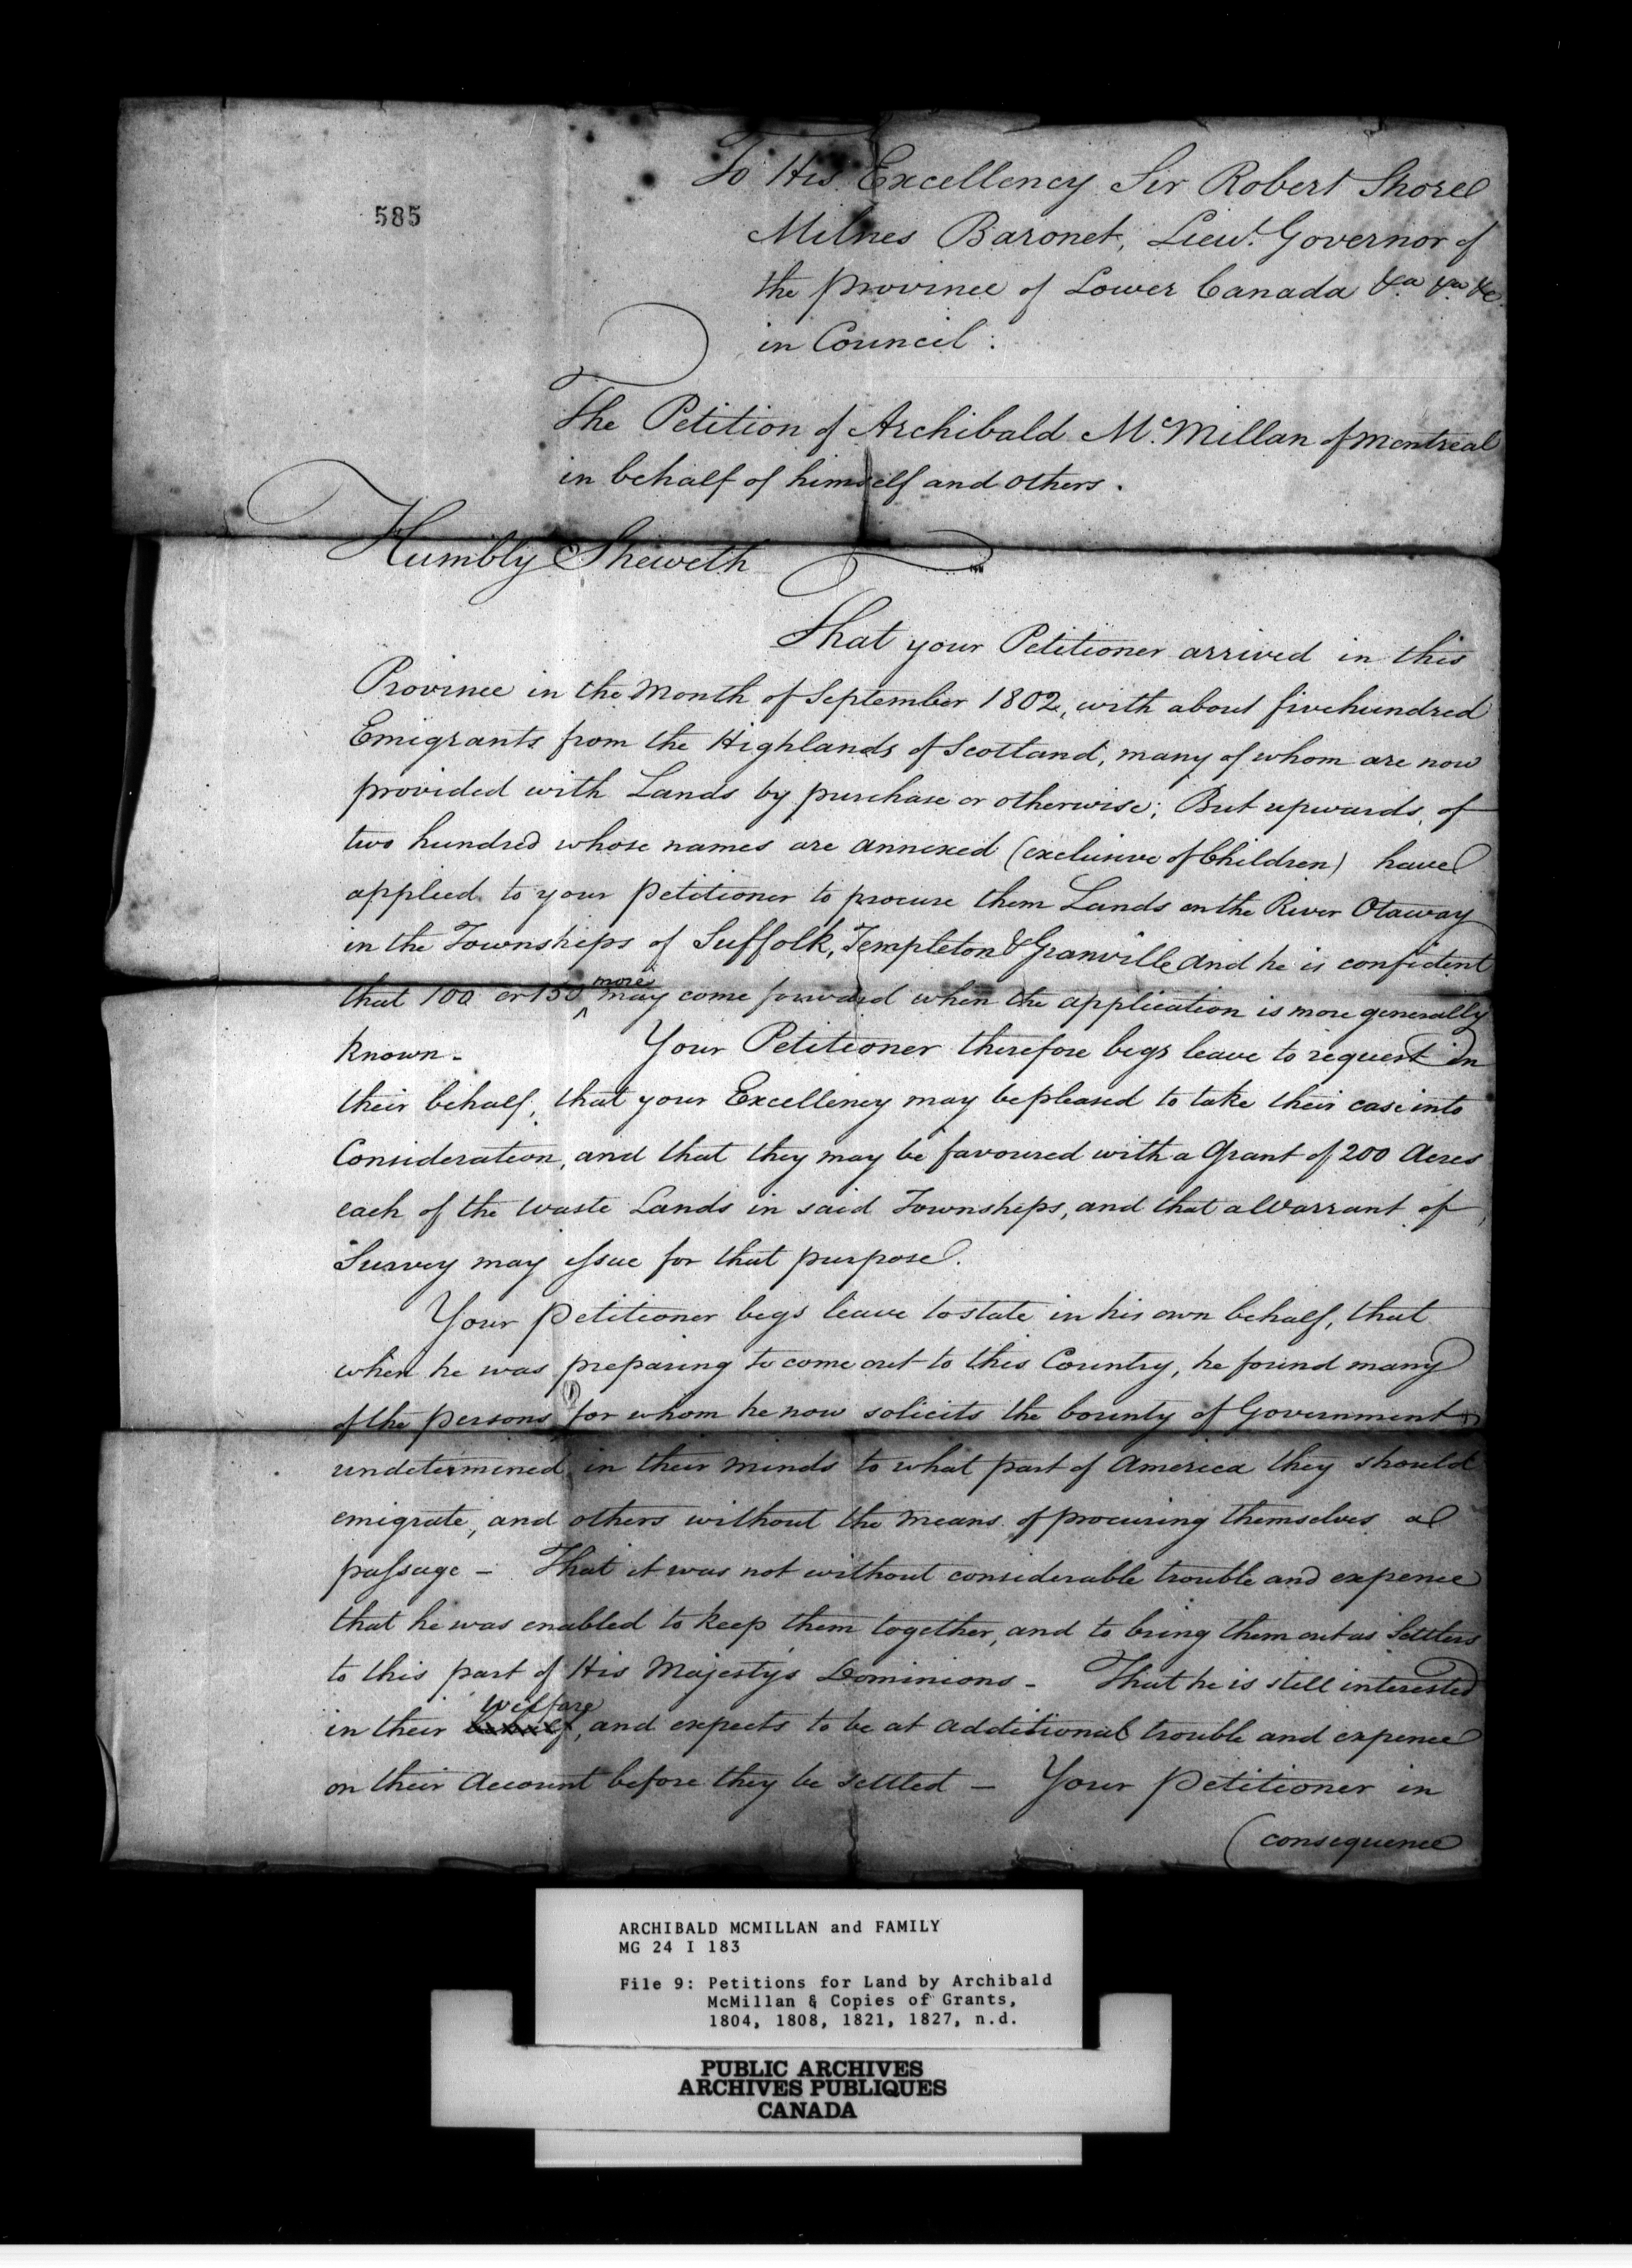 585
To His Excellency Sir Robert Shore
Milnes Baronet, Lieut. Governor of
the province of Lower Canada &ca &ca &c.
in Council:
The Petition of Archibald McMillan of Montreal
in behalf of himself and others.
Humbly Sheweth
That your Petitioner arrived in this
Province in the Month of September 1802, with about fivehundred
Emigrants from the Highlands of Scotland, many of whom are now
provided with Lands by purchase or otherwise; But upwards of
two hundred whose names are annexed (exclusive of Children) have
applied to your petitioner to procure them Lands on the River Otaway
in the Townships of Suffolk, Templeton & Granville and he is confident
that 100 or 150 more may come forward when the application is more generally
known - Your Petitioner therefore begs leave to request in
their behalf, that your Excellency may be pleased to take their case into
Consideration, and that they may be favoured with a Grant of 200 Acres
each of the waste Lands in said Townships, and that a Warrant of
Survey may issue for that purpose.
Your petitioner begs leave to state in his own behalf, that
when he was preparing to come out to this Country, he found many
of the persons for whom he now solicits the bounty of Government
undetermined in their minds to what part of America they should
emigrate, and others without the means of procuring themselves a
passage - That it was not without considerable trouble and expence
that he was enabled to keep them together, and to bring them out as Settlers
to this part of His Majesty's Dominions - That he is still interested
in their behalf welfare, and expects to be at additional trouble and expence
on their Account before they be settled - Your petitioner in
(consequence
ARCHIBALD MCMILLAN and FAMILY
MG 24 I 183
File 9: Petitions for Land by Archibald
McMillan & Copies of Grants,
1804, 1808, 1821, 1827, n.d.
PUBLIC ARCHIVES
ARCHIVES PUBLIQUES
CANADA